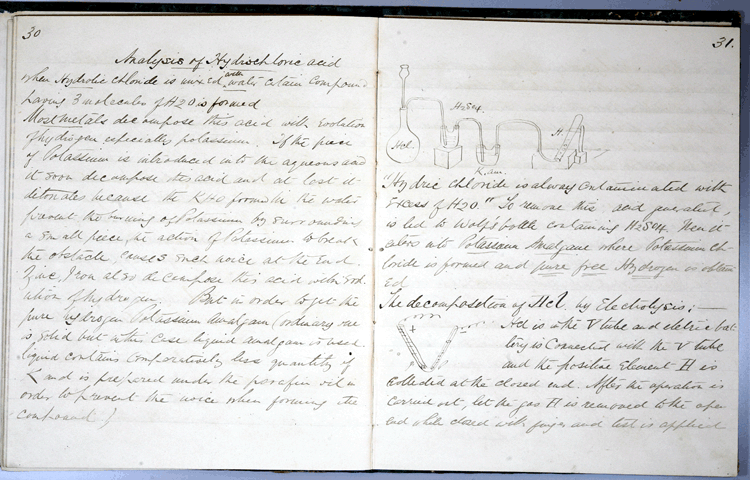 30
Analysis of Hydrochloric acid
when Hydric Chloride is mixed with water certain Compound
having 3 molecules of H2O is formed
Most metals decompose this acid with Evolution
of hydrogen especially potassium. if the piece
of Potassium is introduced into the aqueous acid
it soon decompose this acid and at last it
detonate because the KHO formed in the water
prevent the running of Potassium by surrounding
a small piece, the action of Potassium to break
the obstacle, causes such noise at the End.
Zinc, Iron also decompose this acid with Evo-
lution of hydrogen. But in order to get the
pure hydrogen Potassium Amalgam (ordinary one
is solid but in this case liquid amalgam is used
liquid contains Comparatively less quantity of
K and is prepared under the parafin oil in
order to prevent the noise when forming the
compound)
31.
H2SO4.
HCl.
H
K. am.
"Hydric chloride is always contaminated with
Excess of H2O." To remove this, acid generated,
is led to Wolf's bottle containing H2SO4. Then it
enters into Potassium Amalgam where Potassium Ch-
loride is formed and pure free Hydrogen is obtain-
Ed.
The decomposition of HCl by Electrolysis; —
+
Acid is in the V tube and eletric bat-
tery is Connected with the V tube
and the positive Element H is
collected at the closed end. After the operation is
carried out, let the gas H is removed to the open
end while closed with finger and test is applied